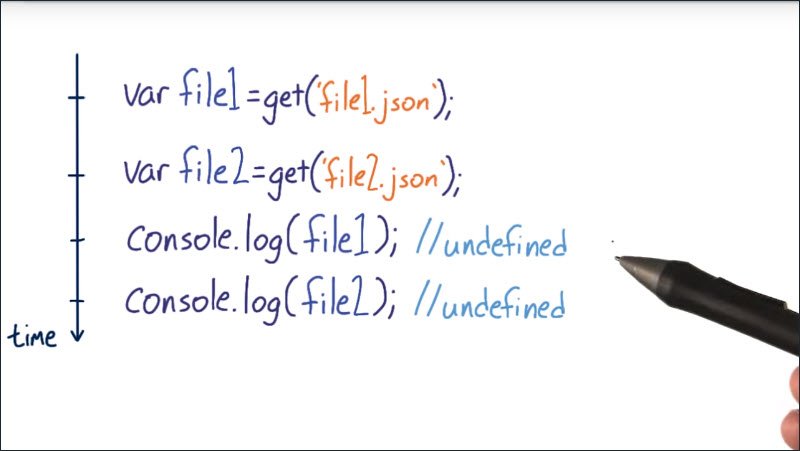 var file1=get('file1.json');
var file2=get('file2.json');
console.log(file1); //undefined
console.log(file2); //undefined
time